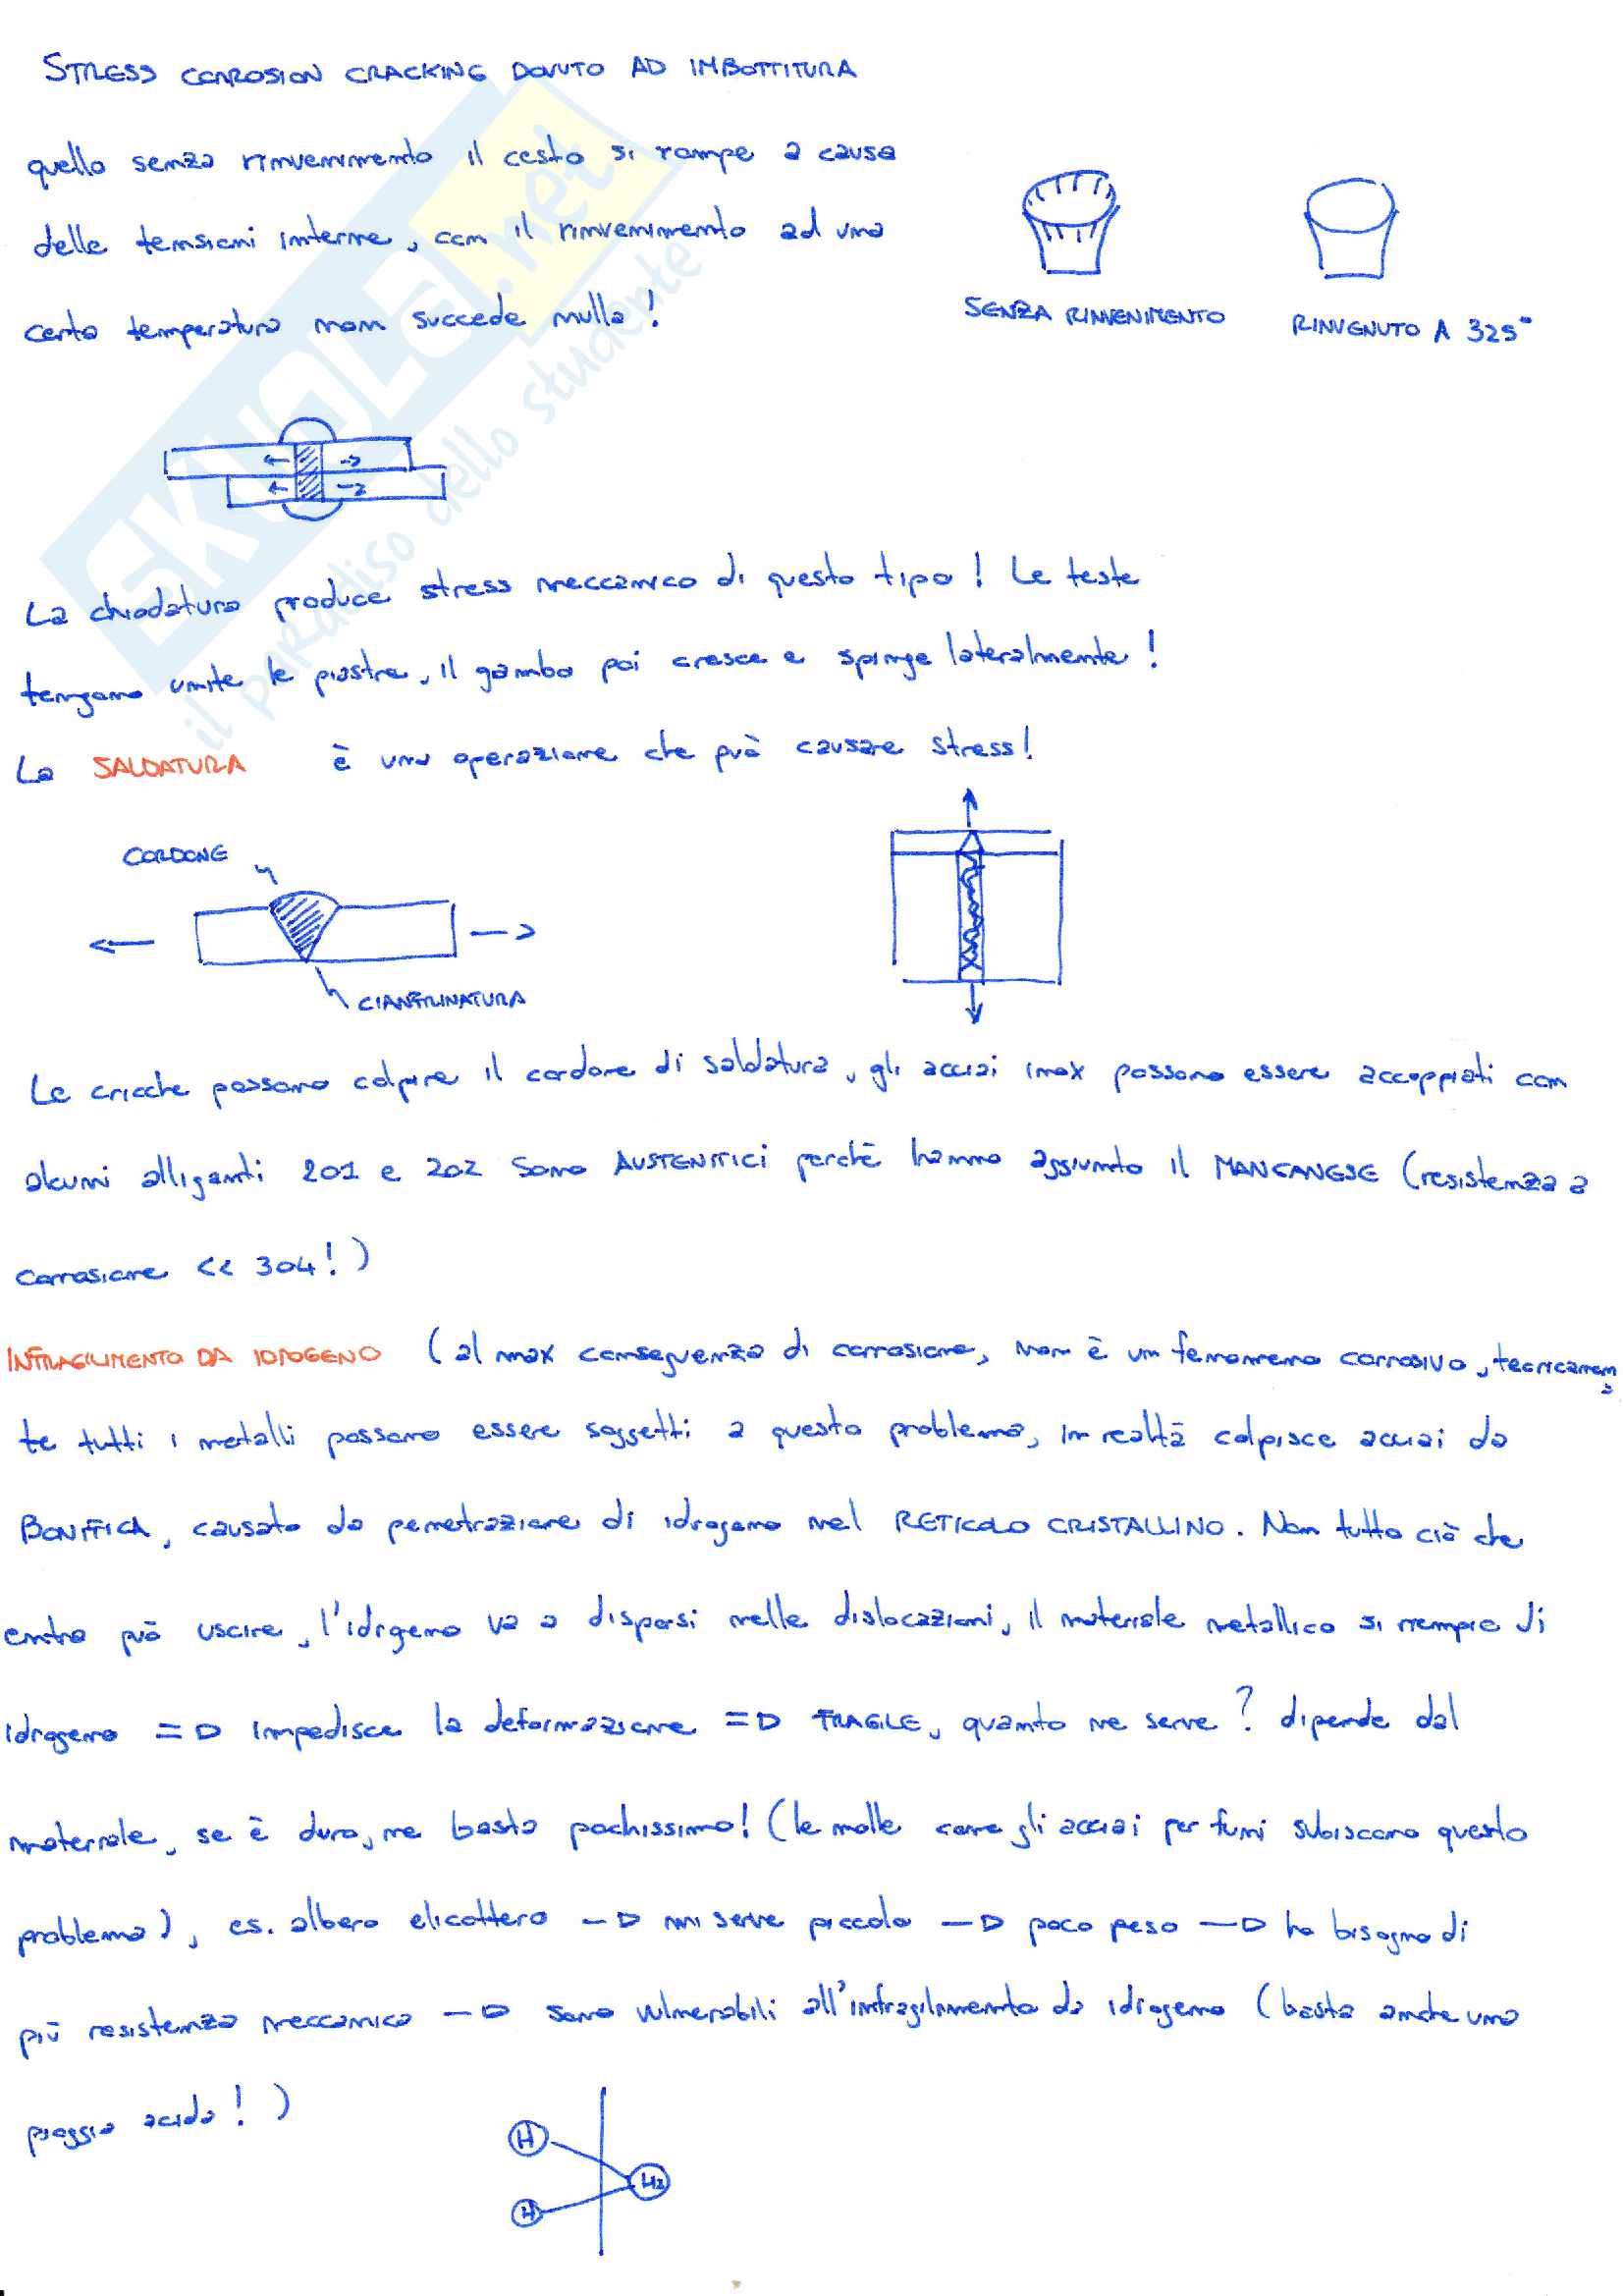 STRESS CORROSION CRACKING DOVUTO AD IMBOTTITURA
quello senza rinvenimento il cesto si rompe a causa
delle tensioni interne, con il rinvenimento ad una
certa temperatura non succede nulla!
SENZA RINVENIMENTO
RINVENUTO A 325°
La chiodatura produce stress meccanico di questo tipo! Le teste
tengono unite le piastre, il gambo poi cresce e spinge lateralmente!
La SALDATURA è una operazione che può causare stress!
CORDONE
CIANFRINATURA
Le cricche possono colpire il cordone di saldatura, gli acciai inox possono essere accoppiati con
alcuni alliganti 201 e 202 sono AUSTENITICI perchè hanno aggiunto il MANGANESE (resistenza a
corrosione << 304!)
INFRAGILIMENTO DA IDROGENO (al max conseguenza di corrosione, non è un fenomeno corrosivo, tecnicamen
te tutti i metalli possono essere soggetti a questo problema, in realtà colpisce acciai da
BONIFICA, causato da penetrazione di idrogeno nel RETICOLO CRISTALLINO. Non tutto ciò che
entra può uscire, l'idrogeno va a disporsi nelle dislocazioni, il materiale metallico si riempie di
idrogeno => impedisce la deformazione => FRAGILE, quanto ne serve? dipende dal
materiale, se è duro, ne basta pochissimo! (le molle come gli acciai per funi subiscono questo
problema), es. albero elicottero -> mi serve piccolo -> poco peso -> ha bisogno di
più resistenza meccanica -> sono vulnerabili all'infragilimento da idrogeno (basta anche una
pioggia acida!)
H
H2
H
SKUOLA.net
il paradiso dello studente